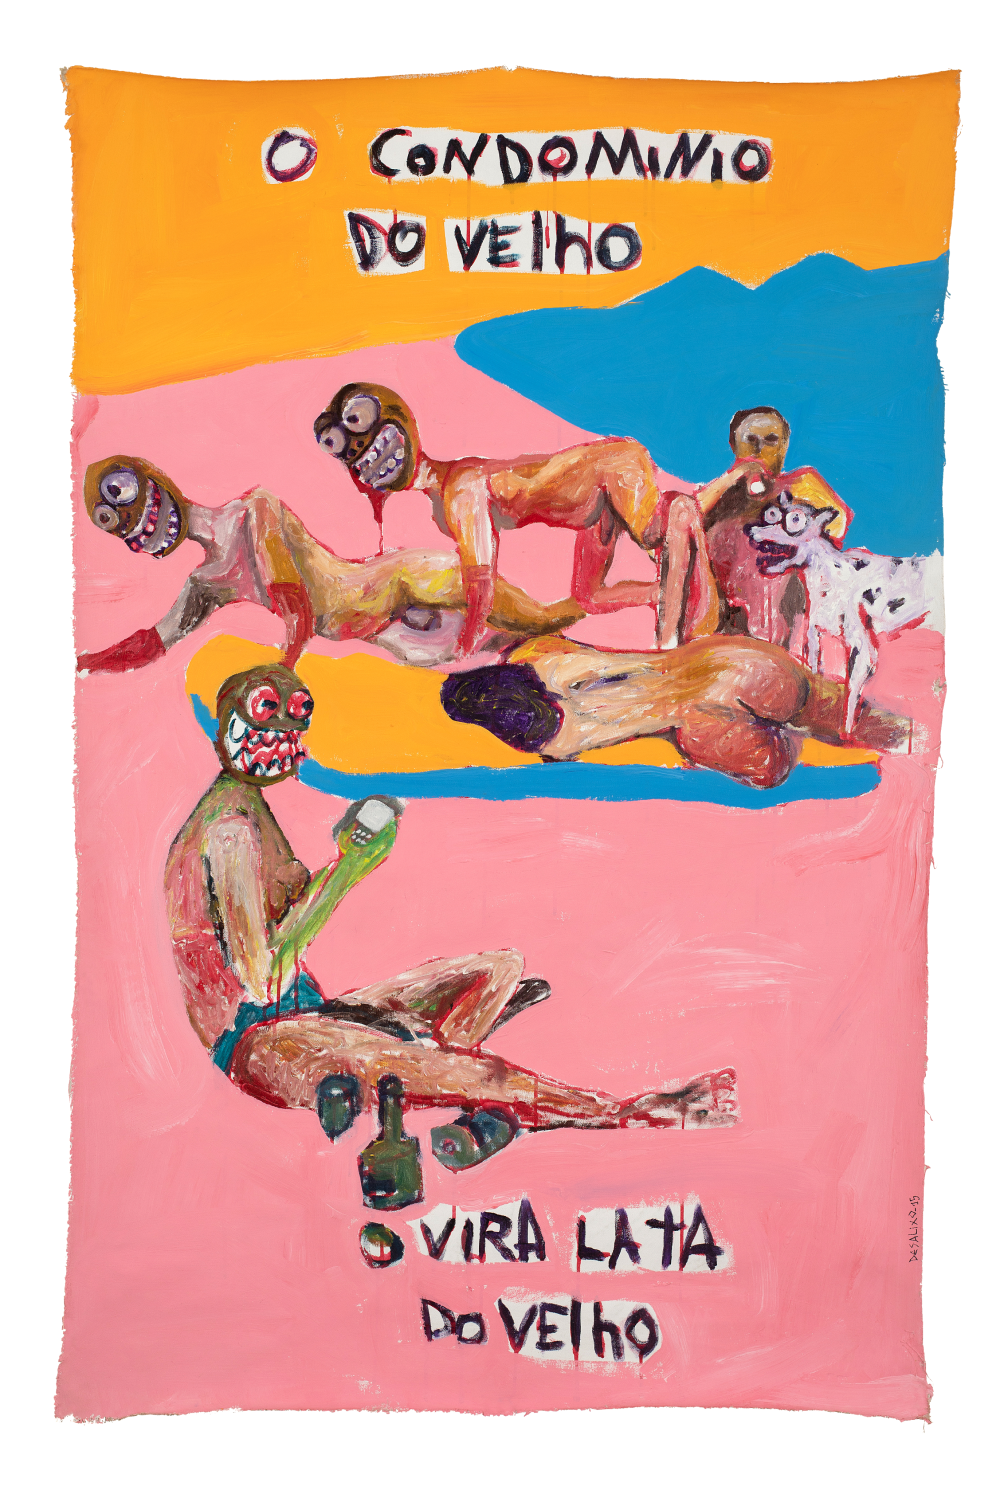 O CONDOMINIO
DO VElhO
O VIRA LATA
DO VElhO
DESALI